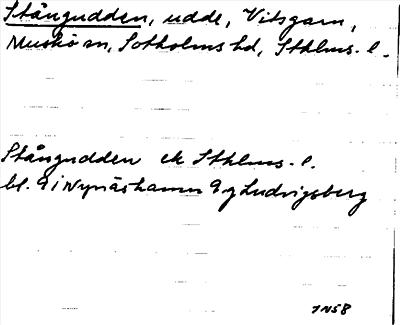 Stångudden, udde, Vitsgarn,
Muskö sn, Sotholms hd, Sthlms. l.
Stångudden ek Sthlms. l.
bl. 9 i Nynäshamn 9 g Ludvigsberg
1958